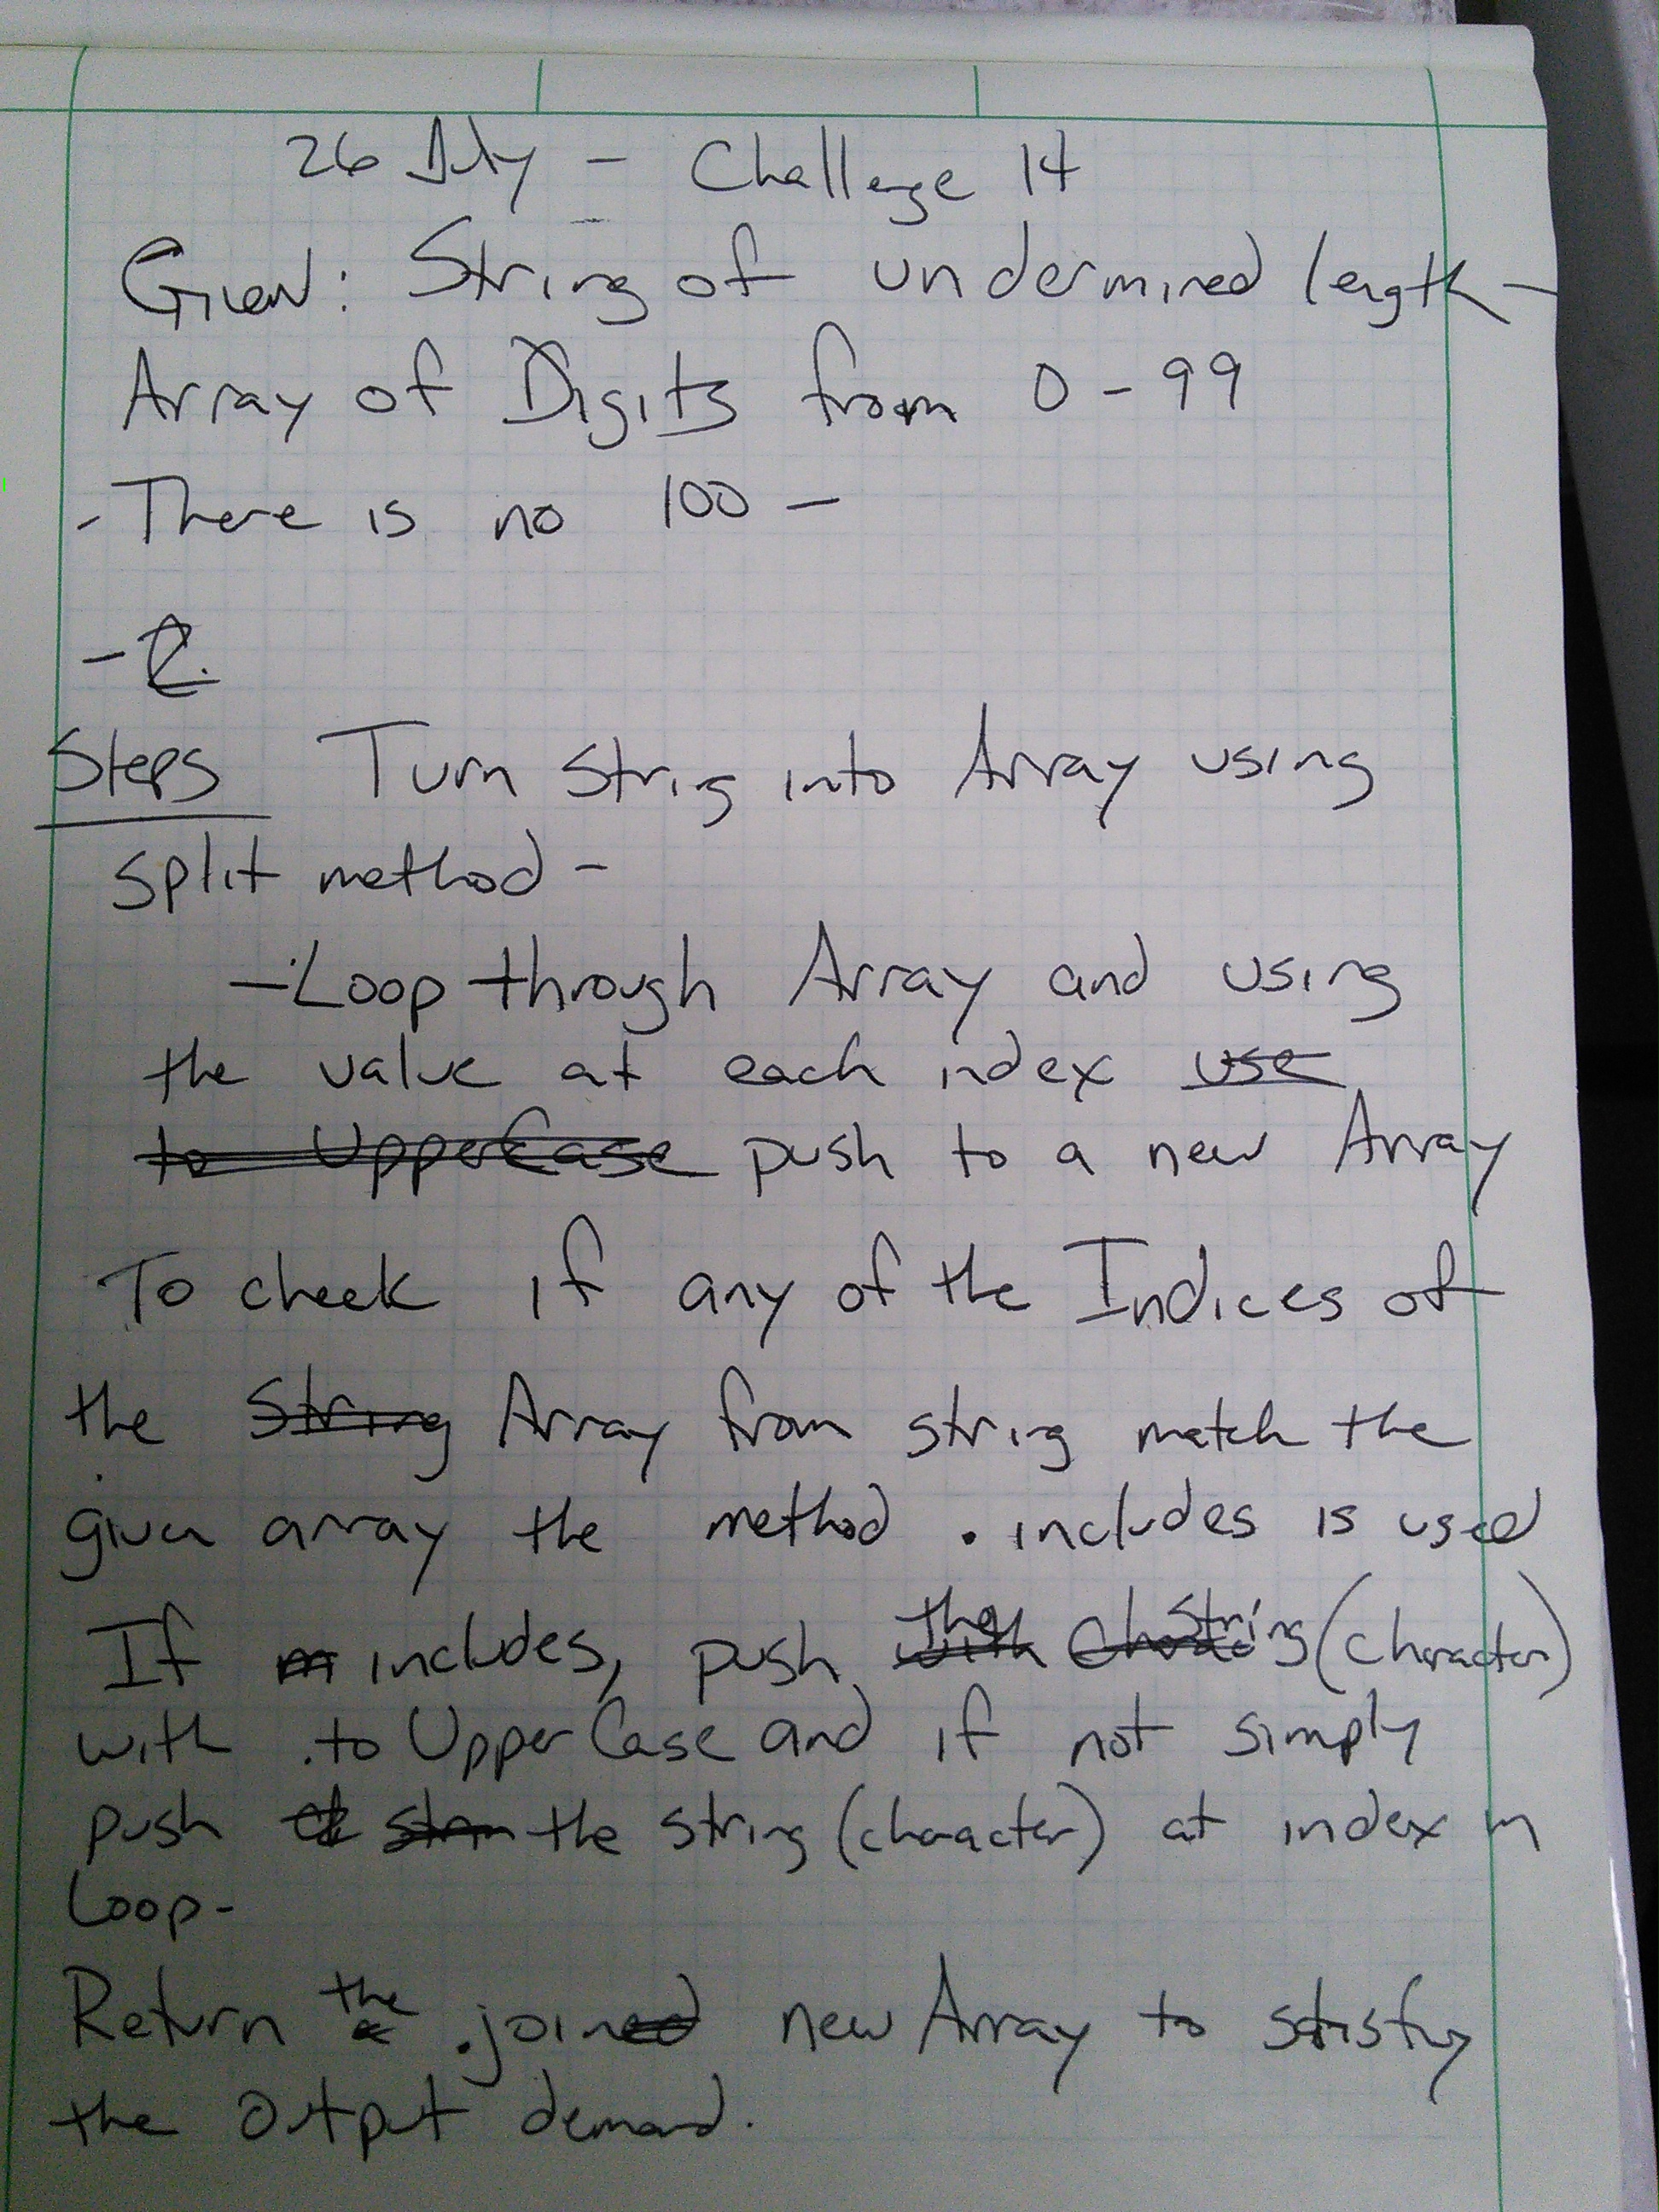 26 July - Challenge 14
Given: String of undermined length -
Array of Digits from 0 - 99
- There is no 100 -
-
Steps Turn string into Array using
split method -
- Loop through Array and using
the value at each index use
to UpperCase push to a new Array
To check if any of the Indices of
the String Array from string match the
given array the method .includes is used
If includes, push the with string (character)
with .to UpperCase and if not simply
push the string (character) at index in
Loop -
Return the .joined new Array to satisfy
the Output demand.